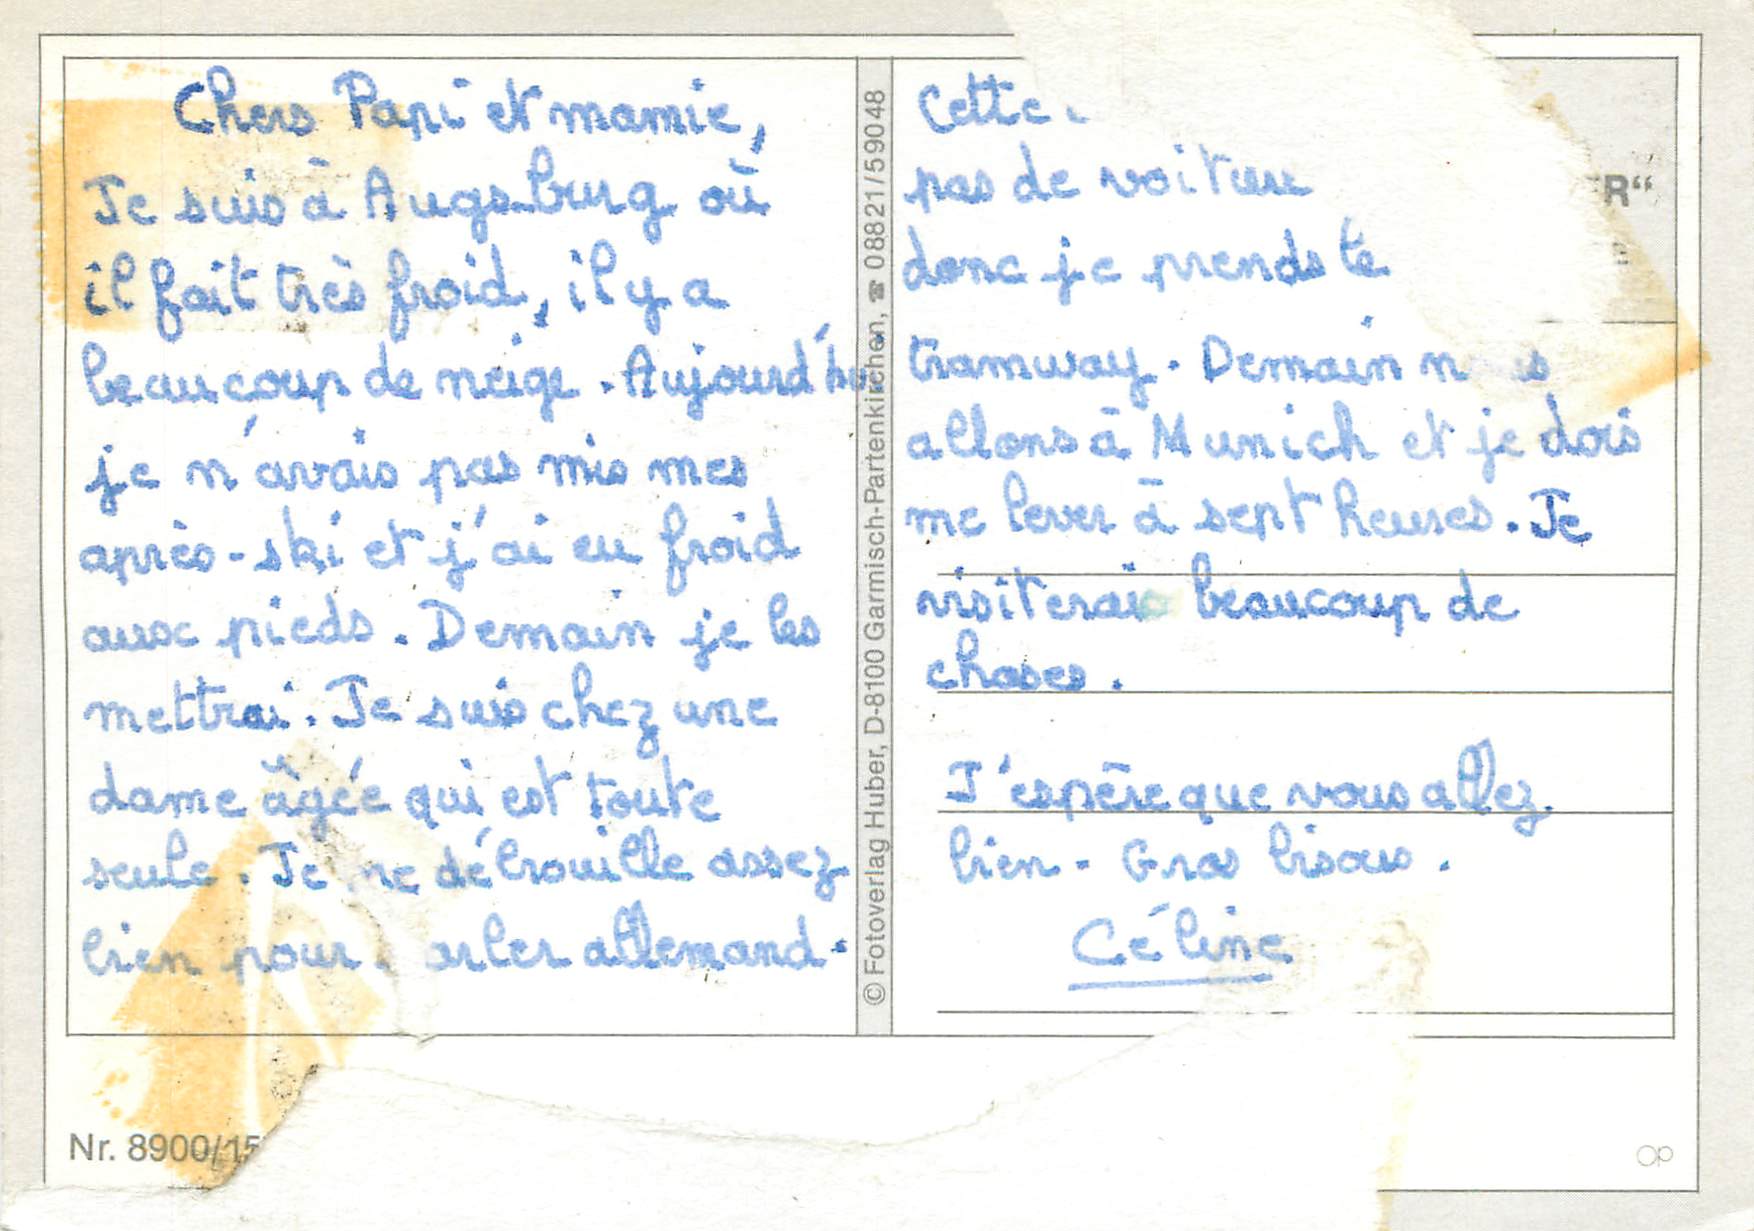 Chers Papi et mamie,
Je suis à Augsburg où
il fait très froid, il y a
beaucoup de neige. Aujourd'hui
je n'avais pas mis mes
après-ski et j'ai eu froid
aux pieds. Demain je les
mettrai. Je suis chez une
dame âgée qui est toute
seule. Je me débrouille assez
bien pour parler allemand.
© Fotoverlag Huber, D-8100 Garmisch-Partenkirchen, ☎ 08821/59048
Cette
pas de voiture
donc je prends le
tramway. Demain nous
allons à Munich et je dois
me lever à sept heures. Je
visiterais beaucoup de
choses.
J'espère que vous allez
bien. Gros bisous.
Céline
R“
Nr. 8900/15